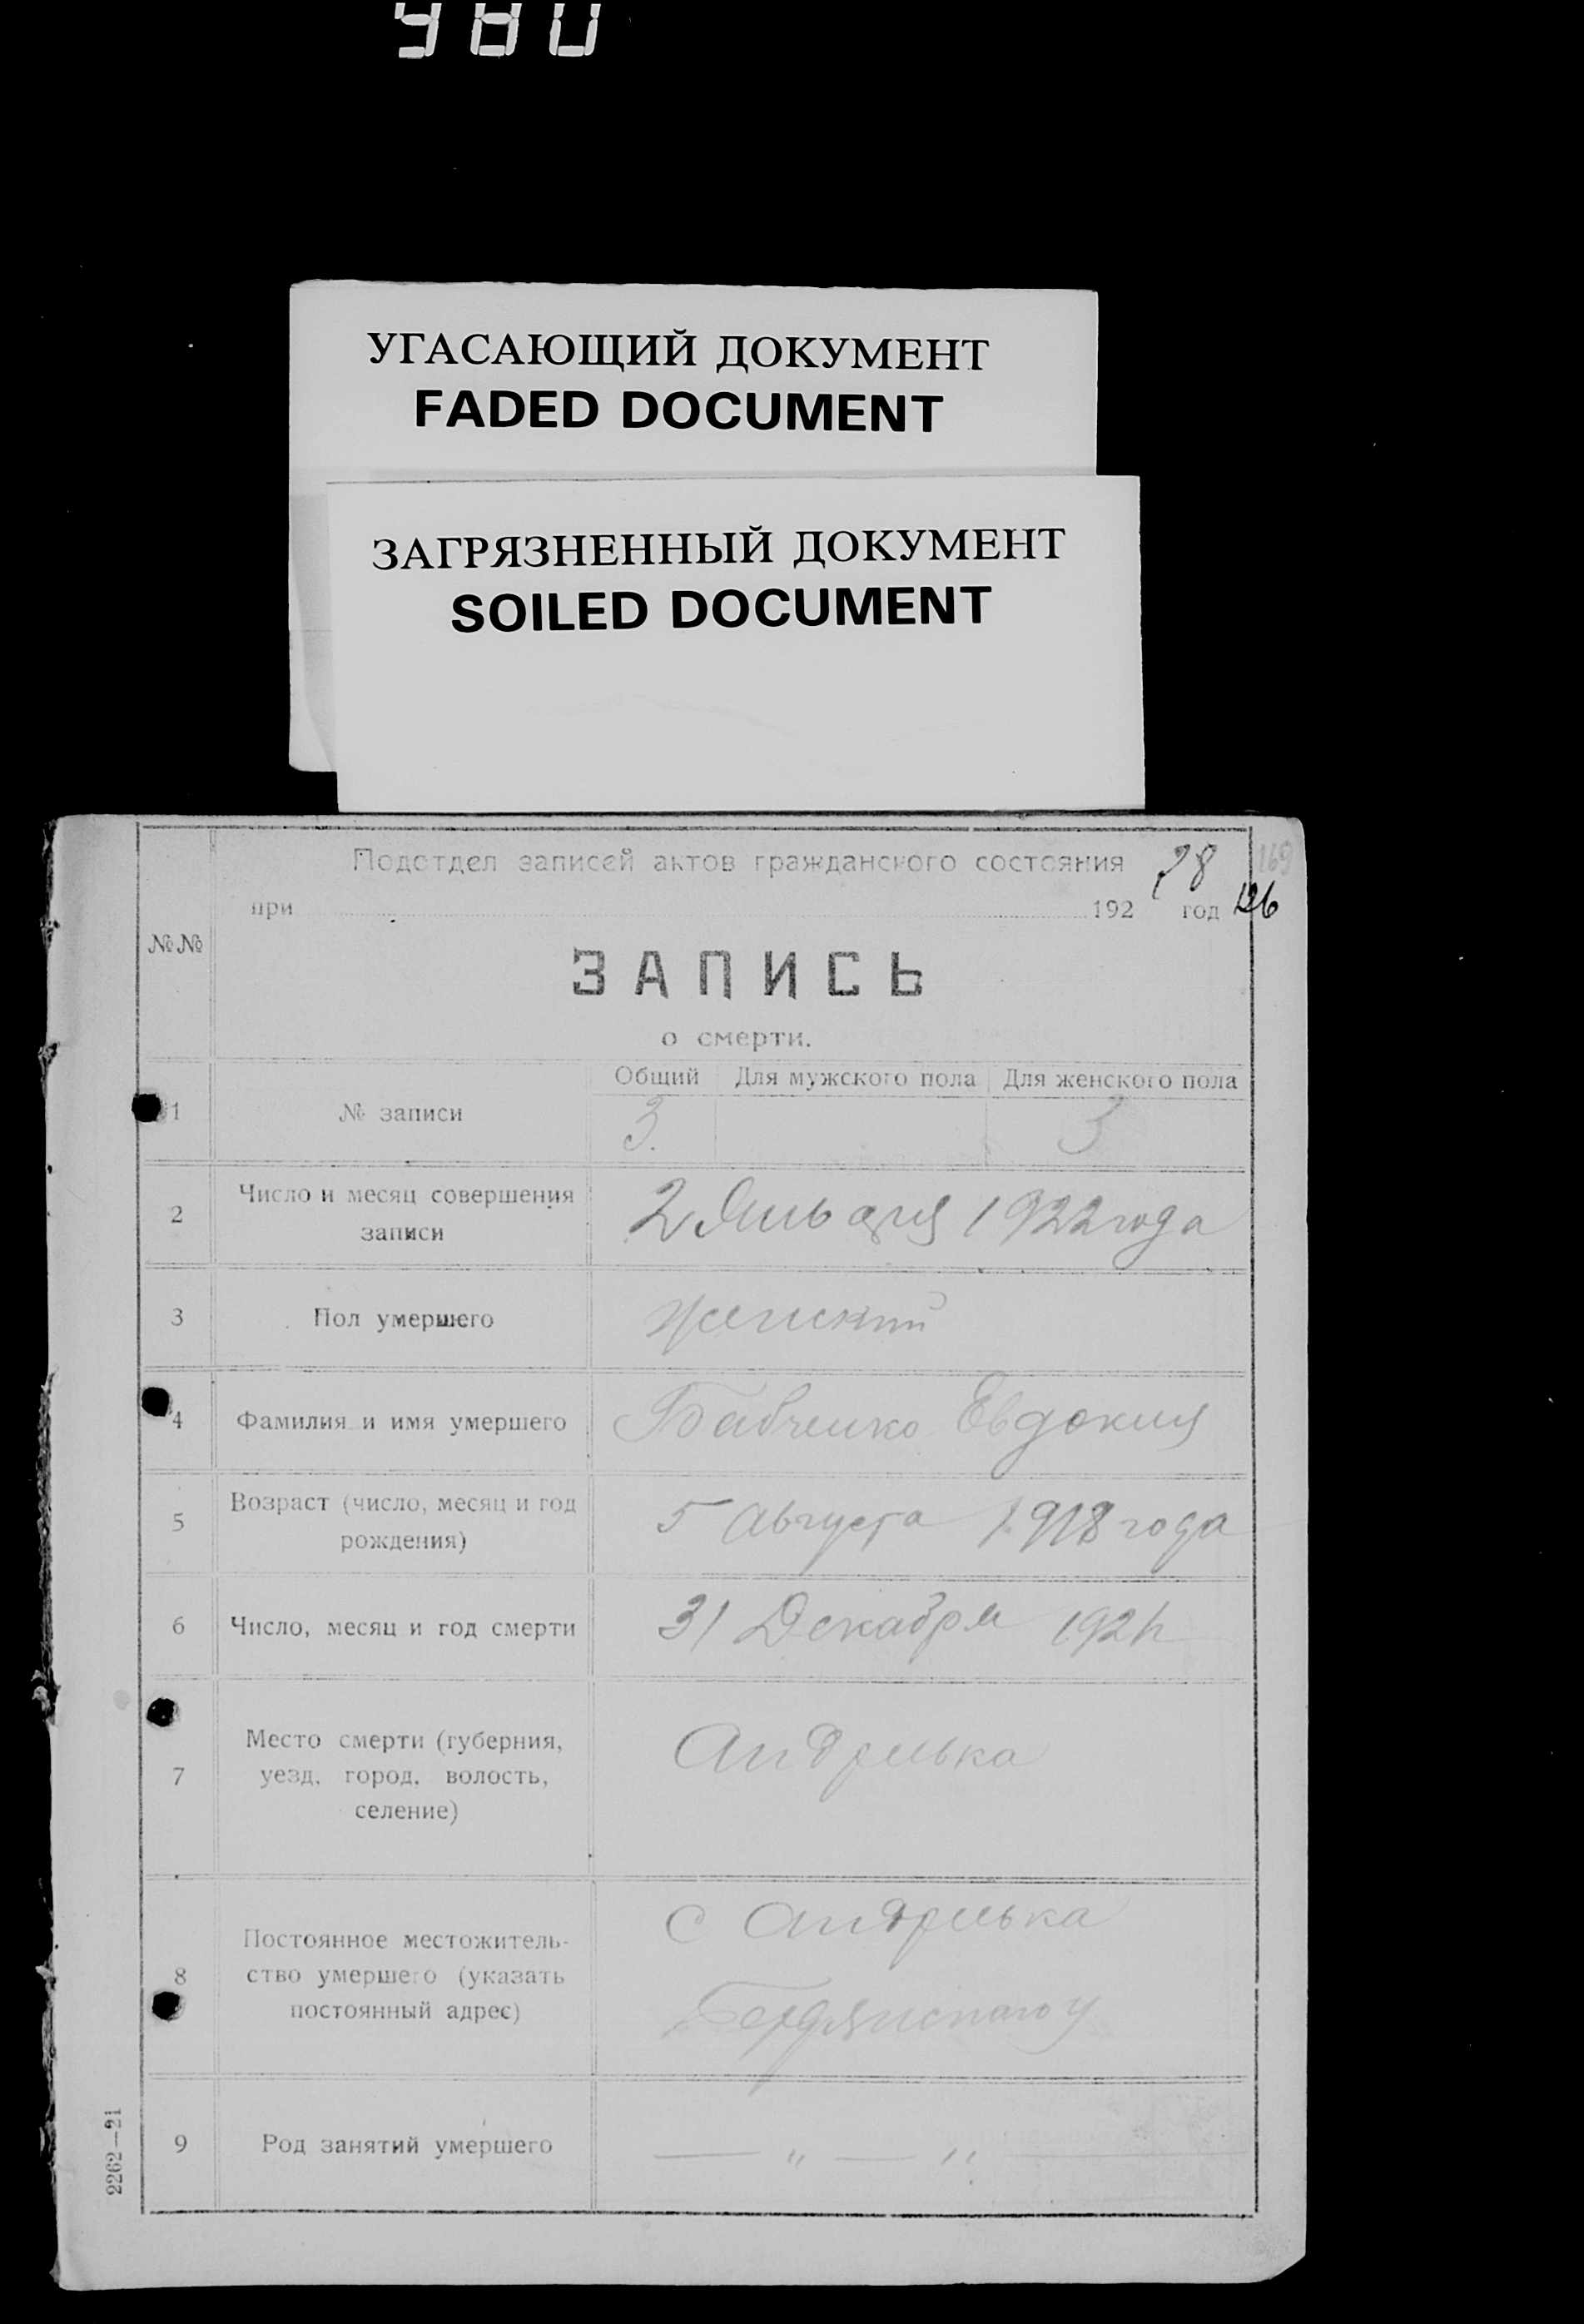 980
УГАСАЮЩИЙ ДОКУМЕНТ
FADED DOCUMENT
ЗАГРЯЗНЕННЫЙ ДОКУМЕНТ
SOILED DOCUMENT
Подотдел записей актов гражданского состояния 28 169
при 192 год 126
№№
ЗАПИСЬ
о смерти.
Общий Для мужского пола Для женского пола
1 № записи 3. 3
2 Число и месяц совершения записи
2 Января 1922 года
3 Пол умершего Женский
4 Фамилия и имя умершего Бабченко Евдокия
5 Возраст (число, месяц и год рождения)
5 Августа 1918 года
6 Число, месяц и год смерти 31 Декабря 192
7 Место смерти (губерния,
уезд, город, волость,
селение)
Андреевка
8 Постоянное местожитель-
ство умершего (указать
постоянный адрес)
с Андреевка
Бердянского у
9 Род занятий умершего — „ — „ —
2262—21